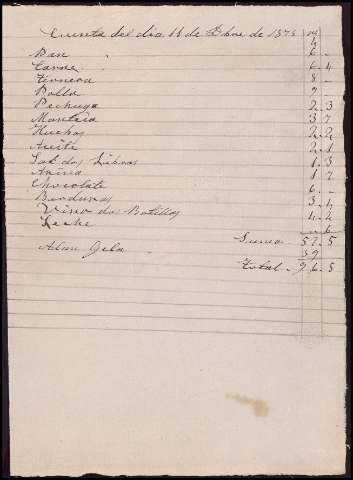 Cuenta del dia 11 de Dbre de 1874 
Pan 6 -
Carne 6 - 4
Ternera 8 -
Pollo 9 -
Pechuga 2 - 3
Manteca 3 - 7
Huebos 2 - 2
Aceite 2 - 1
Sal dos Libras 1 - 3
Arina 1 2
Chocolate 6 -
Berduras 3 - 4
Vino dos Botellas 4 - 2
Leche " 6
Suma 57 - 5
39
Total - 96 - 5